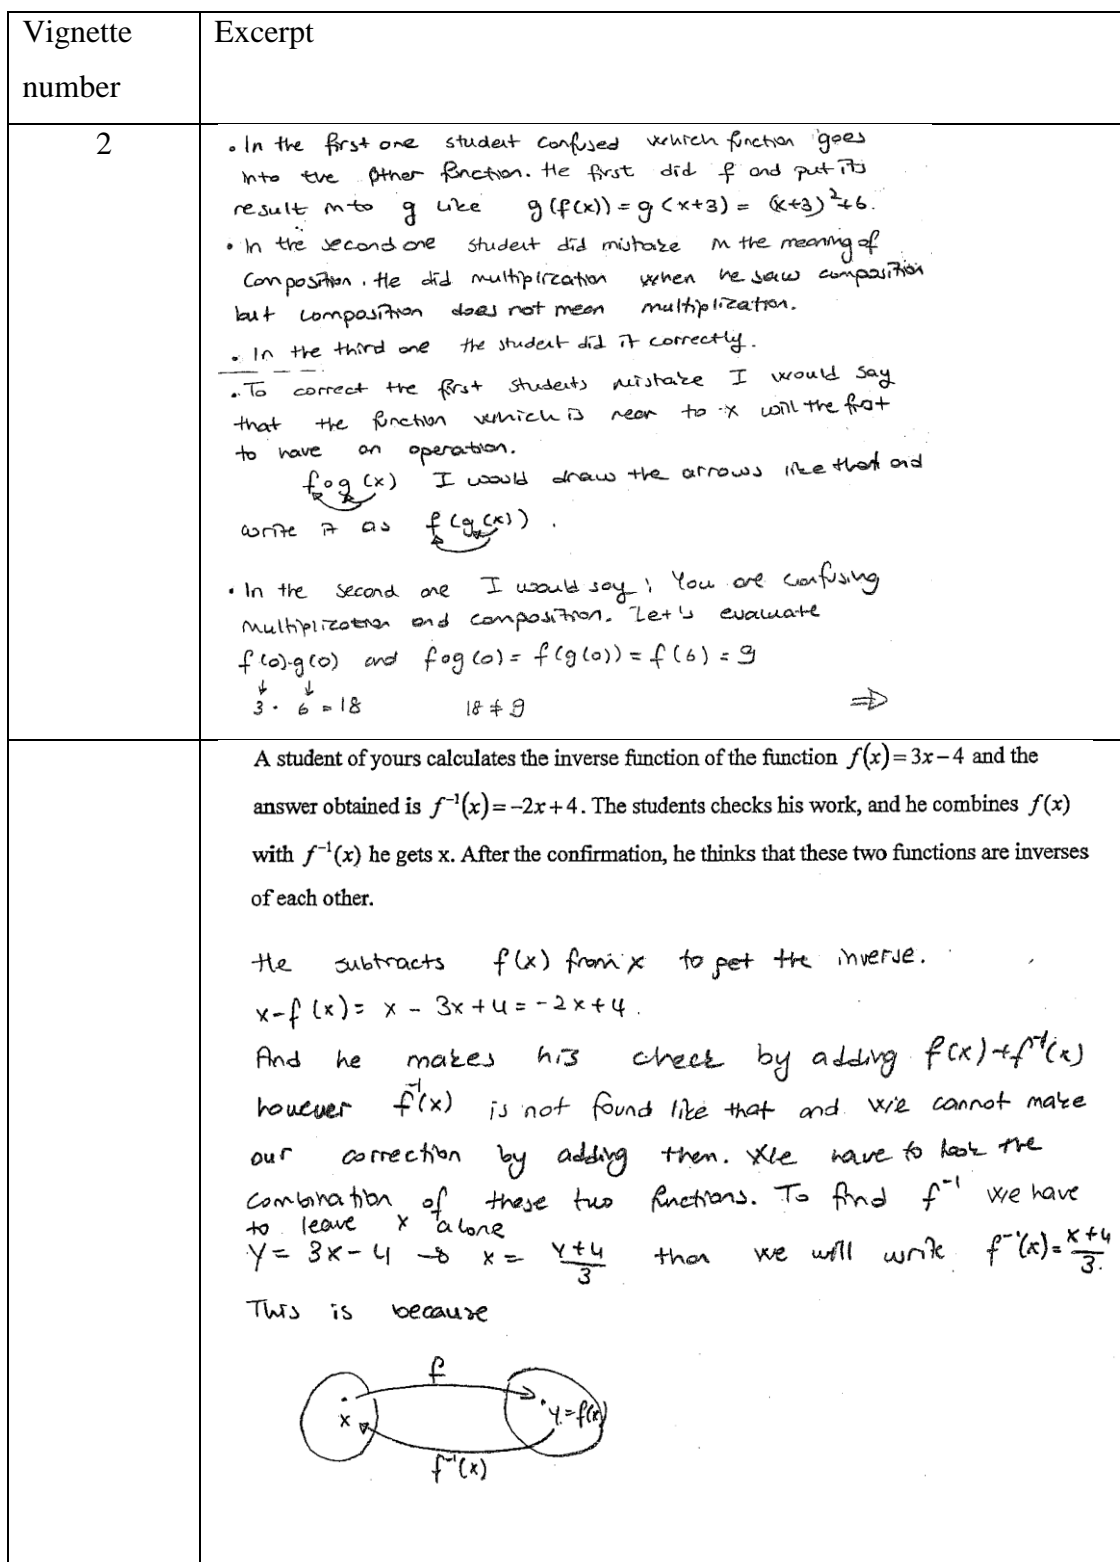 Vignette
number
Excerpt
2
• In the first one student confused which function goes
into the other function. He first did f and put its
result into g like g(f(x)) = g(x+3) = (x+3)²+6.
• In the second one student did mistake in the meaning of
composition. He did multiplication when he saw composition
but composition does not mean multiplication.
• In the third one the student did it correctly.
• To correct the first students mistake I would say
that the function which is near to x will the first
to have an operation.
fog(x) I would draw the arrows like that and
write it as f(g(x)).
• In the second one I would say; You are confusing
multiplication and composition. Let's evaluate
f(0).g(0) and fog(0) = f(g(0)) = f(6) = 9
↓ ↓
3 . 6 = 18 18 ≠ 9 ⇒
A student of yours calculates the inverse function of the function f(x)=3x−4 and the
answer obtained is f⁻¹(x)=−2x+4. The students checks his work, and he combines f(x)
with f⁻¹(x) he gets x. After the confirmation, he thinks that these two functions are inverses
of each other.
He subtracts f(x) from x to get the inverse.
x-f(x) = x - 3x + 4 = -2x + 4.
And he makes his check by adding f(x)+f⁻¹(x)
however f⁻¹(x) is not found like that and we cannot make
our correction by adding then. We have to look the
combination of these two functions. To find f⁻¹ we have
to leave x alone
Y = 3x - 4 → x = (y+4)/3 then we will write f⁻¹(x) = (x+4)/3.
This is because
f
x
y=f(x)
f⁻¹(x)